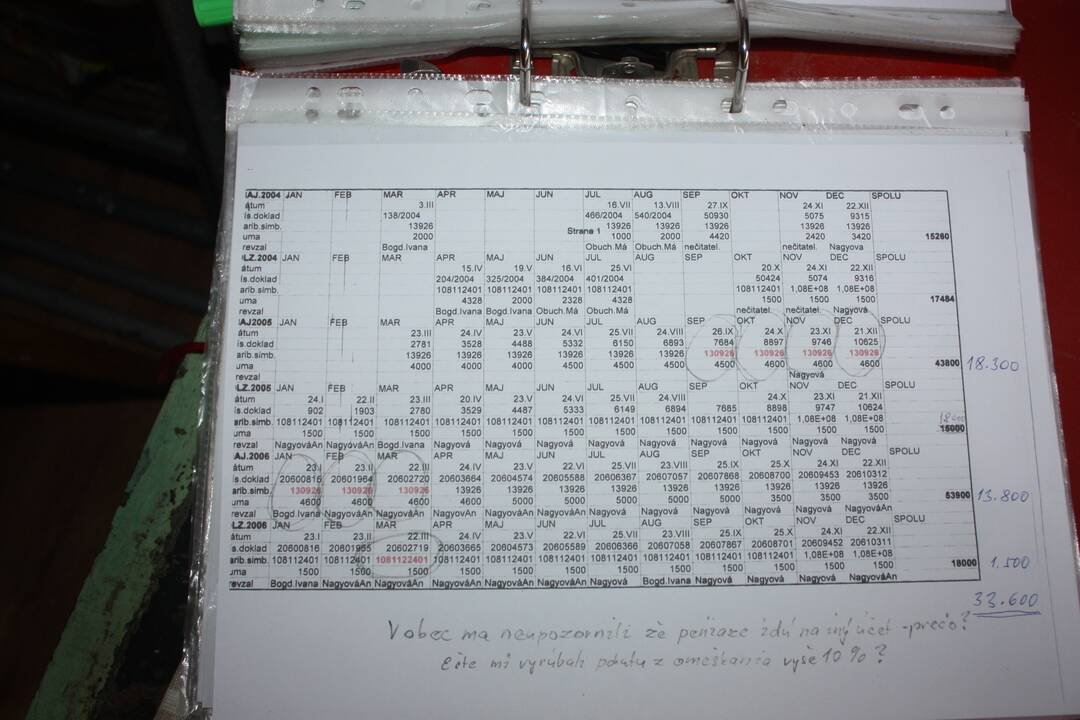 AJ.2004 JAN FEB MAR APR MAJ JUN JUL AUG SEP OKT NOV DEC SPOLU
átum 3.III 16.VII 13.VIII 27.IX 24.XI 22.XII
ís.doklad 138/2004 466/2004 540/2004 50930 5075 9315
arib.simb. 13926 13926 13926 13926 13926 13926
Strana 1
uma 2000 1000 2000 4420 2420 3420 15260
revzal Bogd.Ivana Obuch.Má Obuch.Má nečitateľ. nečitateľ. Nagyova
LZ.2004 JAN FEB MAR APR MAJ JUN JUL AUG SEP OKT NOV DEC SPOLU
átum 15.IV 19.V 16.VI 25.VI 20.X 24.XI 22.XII
ís.doklad 204/2004 325/2004 384/2004 401/2004 50424 5074 9316
arib.simb. 108112401 108112401 108112401 108112401 108112401 1,08E+08 1,08E+08
uma 4328 2000 2328 4328 1500 1500 1500 17484
revzal Bogd.Ivana Bogd.Ivana Obuch.Má Obuch.Má nečitateľ. nečitateľ. Nagyová
AJ2005 JAN FEB MAR APR MAJ JUN JUL AUG SEP OKT NOV DEC SPOLU
átum 23.III 24.IV 23.V 24.VI 25.VII 24.VIII 26.IX 24.X 23.XI 21.XII
ís.doklad 2781 3528 4488 5332 6150 6893 7684 8897 9746 10625
arib.simb. 13926 13926 13926 13926 13926 13926 130926 130926 130926 130926
uma 4000 4000 4000 4500 4500 4500 4500 4600 4600 4600 43800 18.300
revzal Nagyová
LZ.2005 JAN FEB MAR APR MAJ JUN JUL AUG SEP OKT NOV DEC SPOLU
átum 24.I 22.II 23.III 20.IV 23.V 24.VI 25.VII 24.VIII 24.X 23.XI 21.XII
ís.doklad 902 1903 2780 3529 4487 5333 6149 6894 7685 8898 9747 10624
arib.simb. 108112401 108112401 108112401 108112401 108112401 108112401 108112401 108112401 108112401 108112401 1,08E+08 1,08E+08
uma 1500 1500 1500 1500 1500 1500 1500 1500 1500 1500 1500 1500
revzal NagyováAn NagyováAn Bogd.Ivana Nagyová Nagyová Nagyová Nagyová Nagyová Nagyová Nagyová Nagyová Nagyová
AJ.2006 JAN FEB MAR APR MAJ JUN JUL AUG SEP OKT NOV DEC SPOLU
átum 23.I 23.II 22.III 24.IV 23.V 22.VI 24.VII 23.VIII 25.IX 25.X 24.XI 22.XII
ís.doklad 20600815 20601964 20602720 20603664 20604574 20605588 20606367 20607057 20607868 20608700 20609453 20610312
arib.simb. 130926 130926 130926 13926 13926 13926 13926 13926 13926 13926 13926 13926
uma 4600 4600 4600 4600 5000 5000 5000 5000 5000 3500 3500 3500 53900 13.800
revzal Bogd.Ivana NagyováAn NagyováAn NagyováAn NagyováAn NagyováAn Nagyová Nagyová Nagyová Nagyová Nagyová NagyováAn
LZ.2006 JAN FEB MAR APR MAJ JUN JUL AUG SEP OKT NOV DEC SPOLU
átum 23.I 23.II 22.III 24.IV 23.V 22.VI 25.VII 23.VIII 25.IX 25.X 24.XI 22.XII
ís.doklad 20600816 20601965 20602719 20603665 20604573 20605589 20606366 20607058 20607867 20608701 20609452 20610311
arib.simb. 108112401 108112401 1081122401 108112401 108112401 108112401 108112401 108112401 108112401 108112401 1,08E+08 1,08E+08
uma 1500 1500 1500 1500 1500 1500 1500 1500 1500 1500 1500 1500 18000 1.500
revzal Bogd.Ivana NagyováAn NagyováAn NagyováAn NagyováAn NagyováAn Nagyová Bogd.Ivana Nagyová Nagyová Nagyová NagyováAn
33.600
Vobec ma neupozornili že peniaze idú na iný účet - prečo?
Ešte mi vyrúbali pokutu z omeškania vyše 10 %?